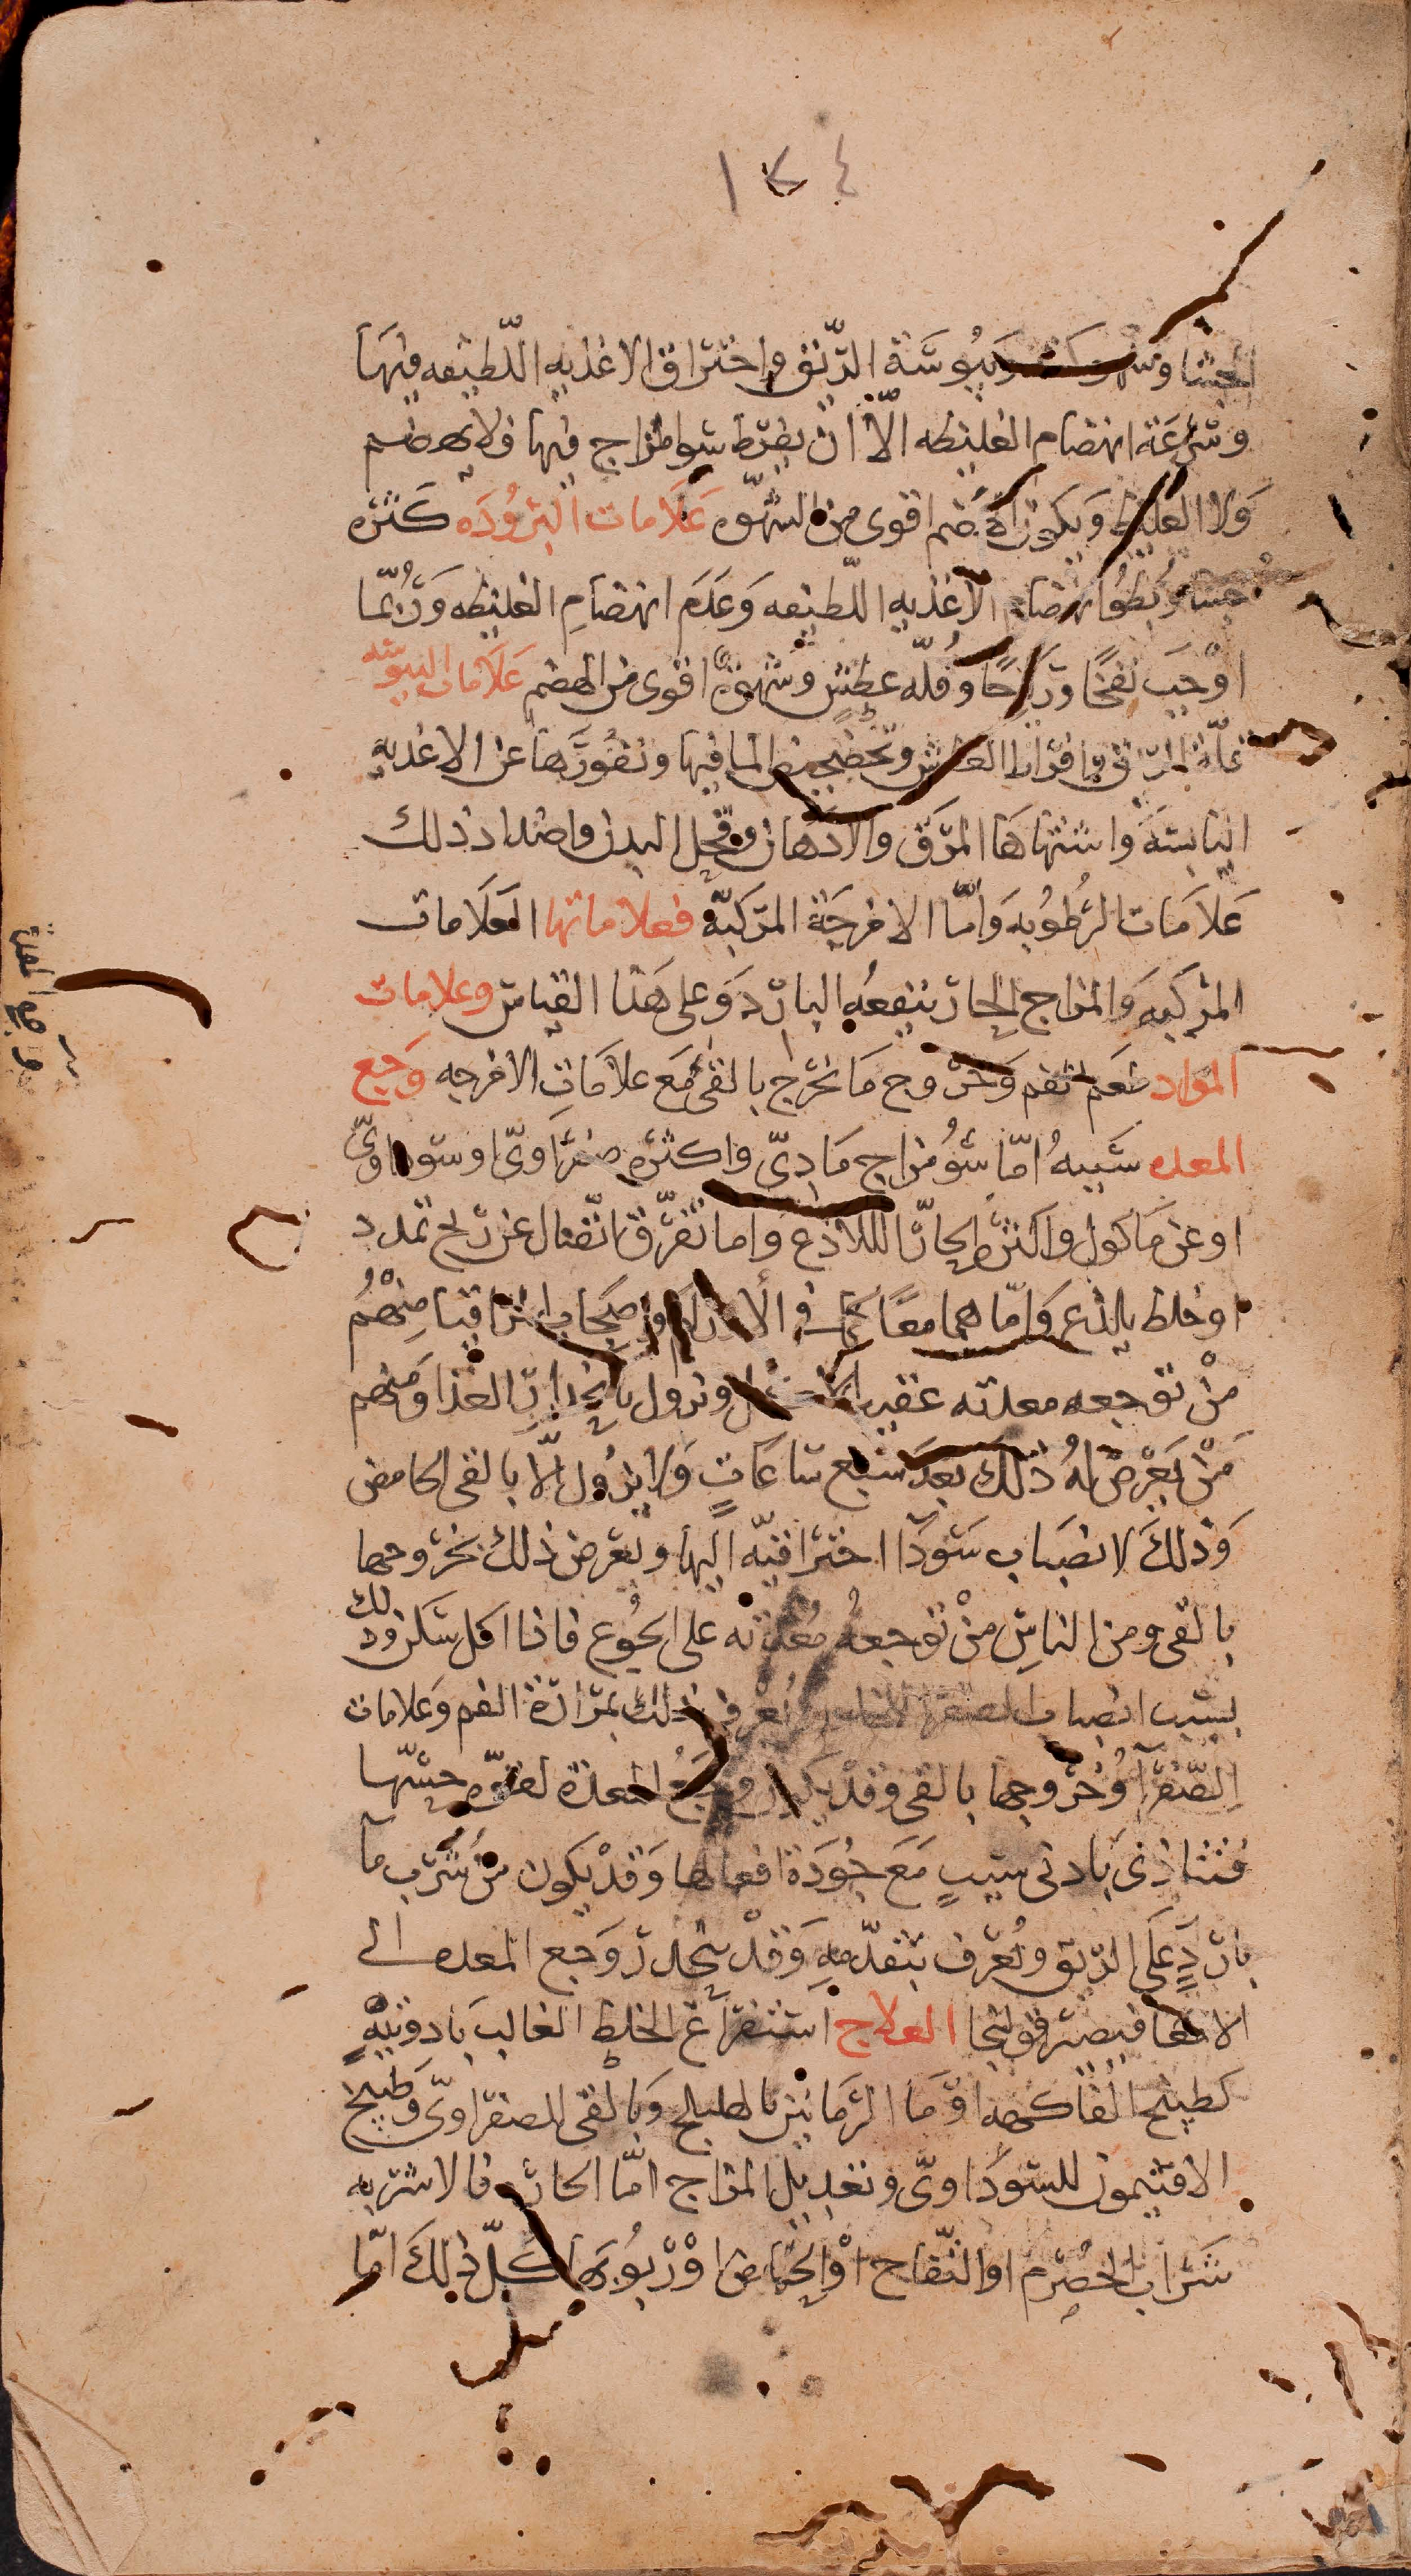 ١٢٤
الجشا ويبوسة الريق واحتراق الاغذيه اللطيفه فيها
وسرعة انهضام الغليظه الا ان يفرط سوا مزاج فيها فلا يهضم
ولا الغليظ ويكون الهضم اقوى من الشهوه علامات البروده كثره
جشا وبطوا انهضام الاغذيه اللطيفه وعدم انهضام الغليظه وربما
اوجب نفخا ورياحا وقله عطش وشهوة اقوى من الهضم علامات اليبوسه
قلة الريق وافراط العطش وتخضخض الما فيها ونفورها عن الاغدية
اليابسة واشتهاها المرق والادهان وقحل البدن واضداد ذلك
علامات الرطوبه واما الامزجة المركبة فعلاماتها العلامات
المركبه والمزاج الحار ينفعه البارد وعلى هذا القياس وعلامات
المواد طعم الفم وخروج ما يخرج بالقى مع علامات الامزجه وجع
المعده سببه اما سو مزاج مادي واكثره صفراوي او سوداوي
او عن ماكول واكثره الحار اللاذع واما تفرق اتصال عن ريح تمدد
او خلط يلذع واما هما معا كما في الاورام واصحاب المراقيا منهم
من توجعه معدته عقيب الاكل ويزول بانحدار الغذا ومنهم
من يعرض له ذلك بعد سبع ساعات ولا يزول الا بالقى الحامض
وذلك لانصباب سودا احتراقيه اليها ويعرض ذلك بخروجها
بالقى ومن الناس من توجعه معدته على الجوع فاذا اكل سكن وذلك
بسبب انصباب الصفرا اليها ويعرف ذلك بمرارة الفم وعلامات
الصفرا وخروجها بالقى وقد يكون وجع المعدة لقوه حسها
فتتاذى بادنى سبب مع جودة افعالها وقد يكون من شرب ما
بارد على الريق ويعرف بتقدمه وقد ينحدر وجع المعده الى
الامعا فيصير قولنجا العلاج استفراغ الخلط الغالب بادويته
كطبيخ الفاكهه او ما الرمانين بالهليلج وبالقى للصفراوي وطبيخ
الافتيمون للسوداوي وتعديل المزاج اما الحار فالاشربه
شراب الحصرم او التفاح او الحماض او ربوبها كل ذلك اما